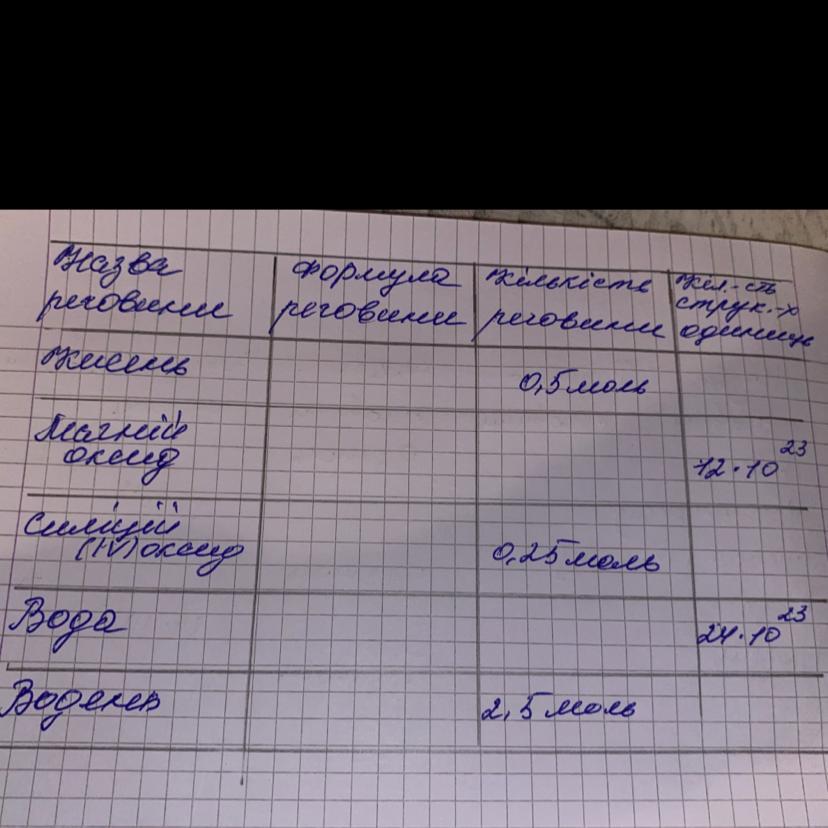 Назва речовини
Формула речовини
Кількість речовини
Кіл.-сть струк.-х одиниць
Кисень
0,5 моль
Магній оксид
12·10²³
Силіцій (IV) оксид
0,25 моль
Вода
24·10²³
Водень
2,5 моль